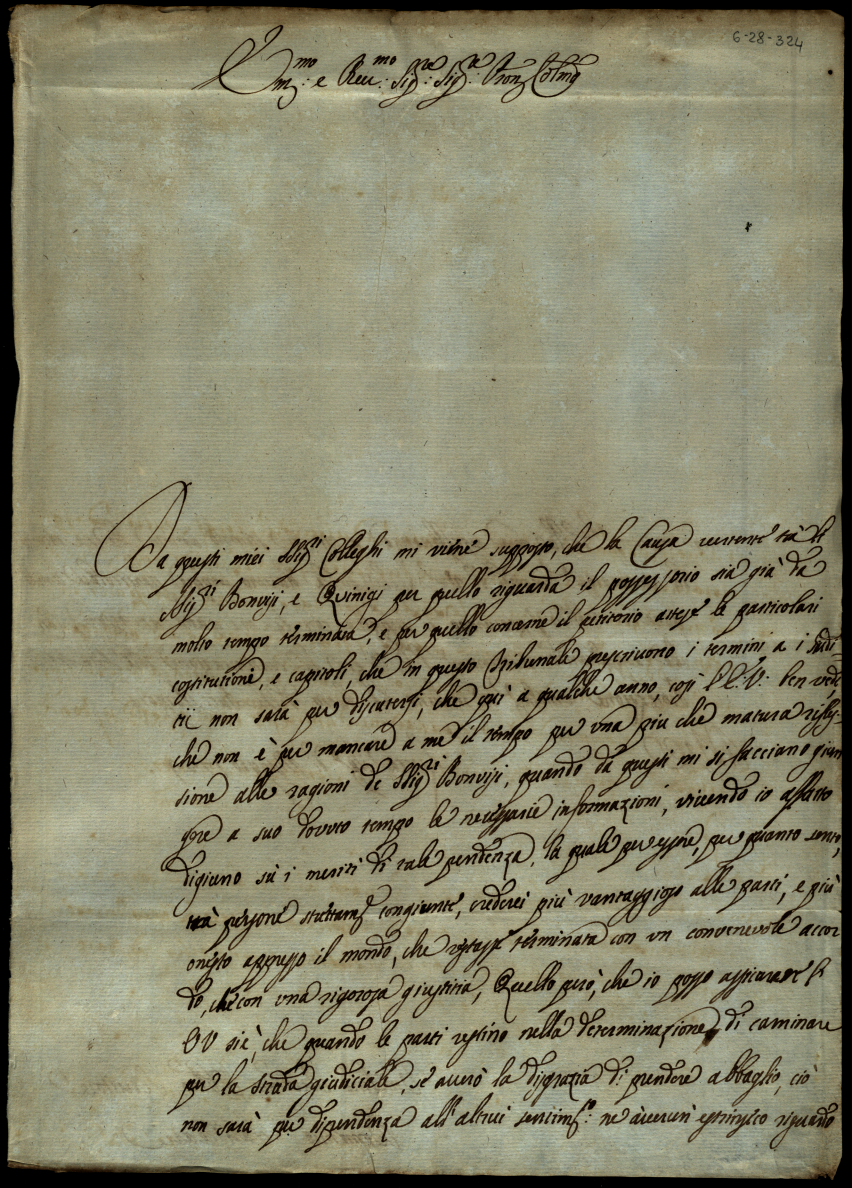 6-28-324
Em.mo e Reu.mo Sig.re Sig.re Pron Colmo
Da questi miei SSig.ri Colleghi mi viene supposto, che la Causa vertente trà li
SSig.ri Bonvisi, e Qvinigi per quello riguarda il possessorio sia già da
molto tempo terminata, e per quello concerne il petitorio attese le particolari
costitutione, e capitoli, che in questo Tribunale prescrivono i termini a i Judi
tii non sarà per discutersi, che quì a qualche anno, così l'E: V: ben vede
che non è per mancare a me il tempo per vna piu che matura rifles-
sione alle ragioni de SSig.ri Bonvisi, quando da questi mi si facciano giun
gere a suo dovuto tempo le necessarie informazioni, vivendo io affatto
digiuno sù i meriti di tale pendenza, la quale per essere, per quanto sento,
trà persone strettam.e congiunte, crederei più vantaggioso alle parti, e più
onesto appresso il mondo, che restasse terminata con vn convenevole accor
do, che con vna rigorosa giustitia, Quello però, che io posso assicurare l'
E V si è, che quando le parti restino nella determinazione di caminare
per la strada giudiciale, se auerò la disgrazia di prendere abbaglio, ciò
non sarà per dipendenza all'altrui sentim.to: ne auerun estrinseco riguardo